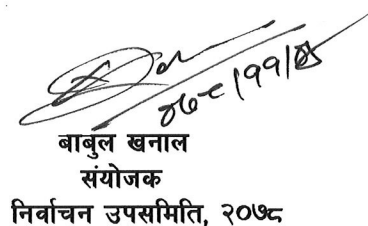 ०७८/११/
बाबुल खनाल
संयोजक
निर्वाचन उपसमिति, २०७८